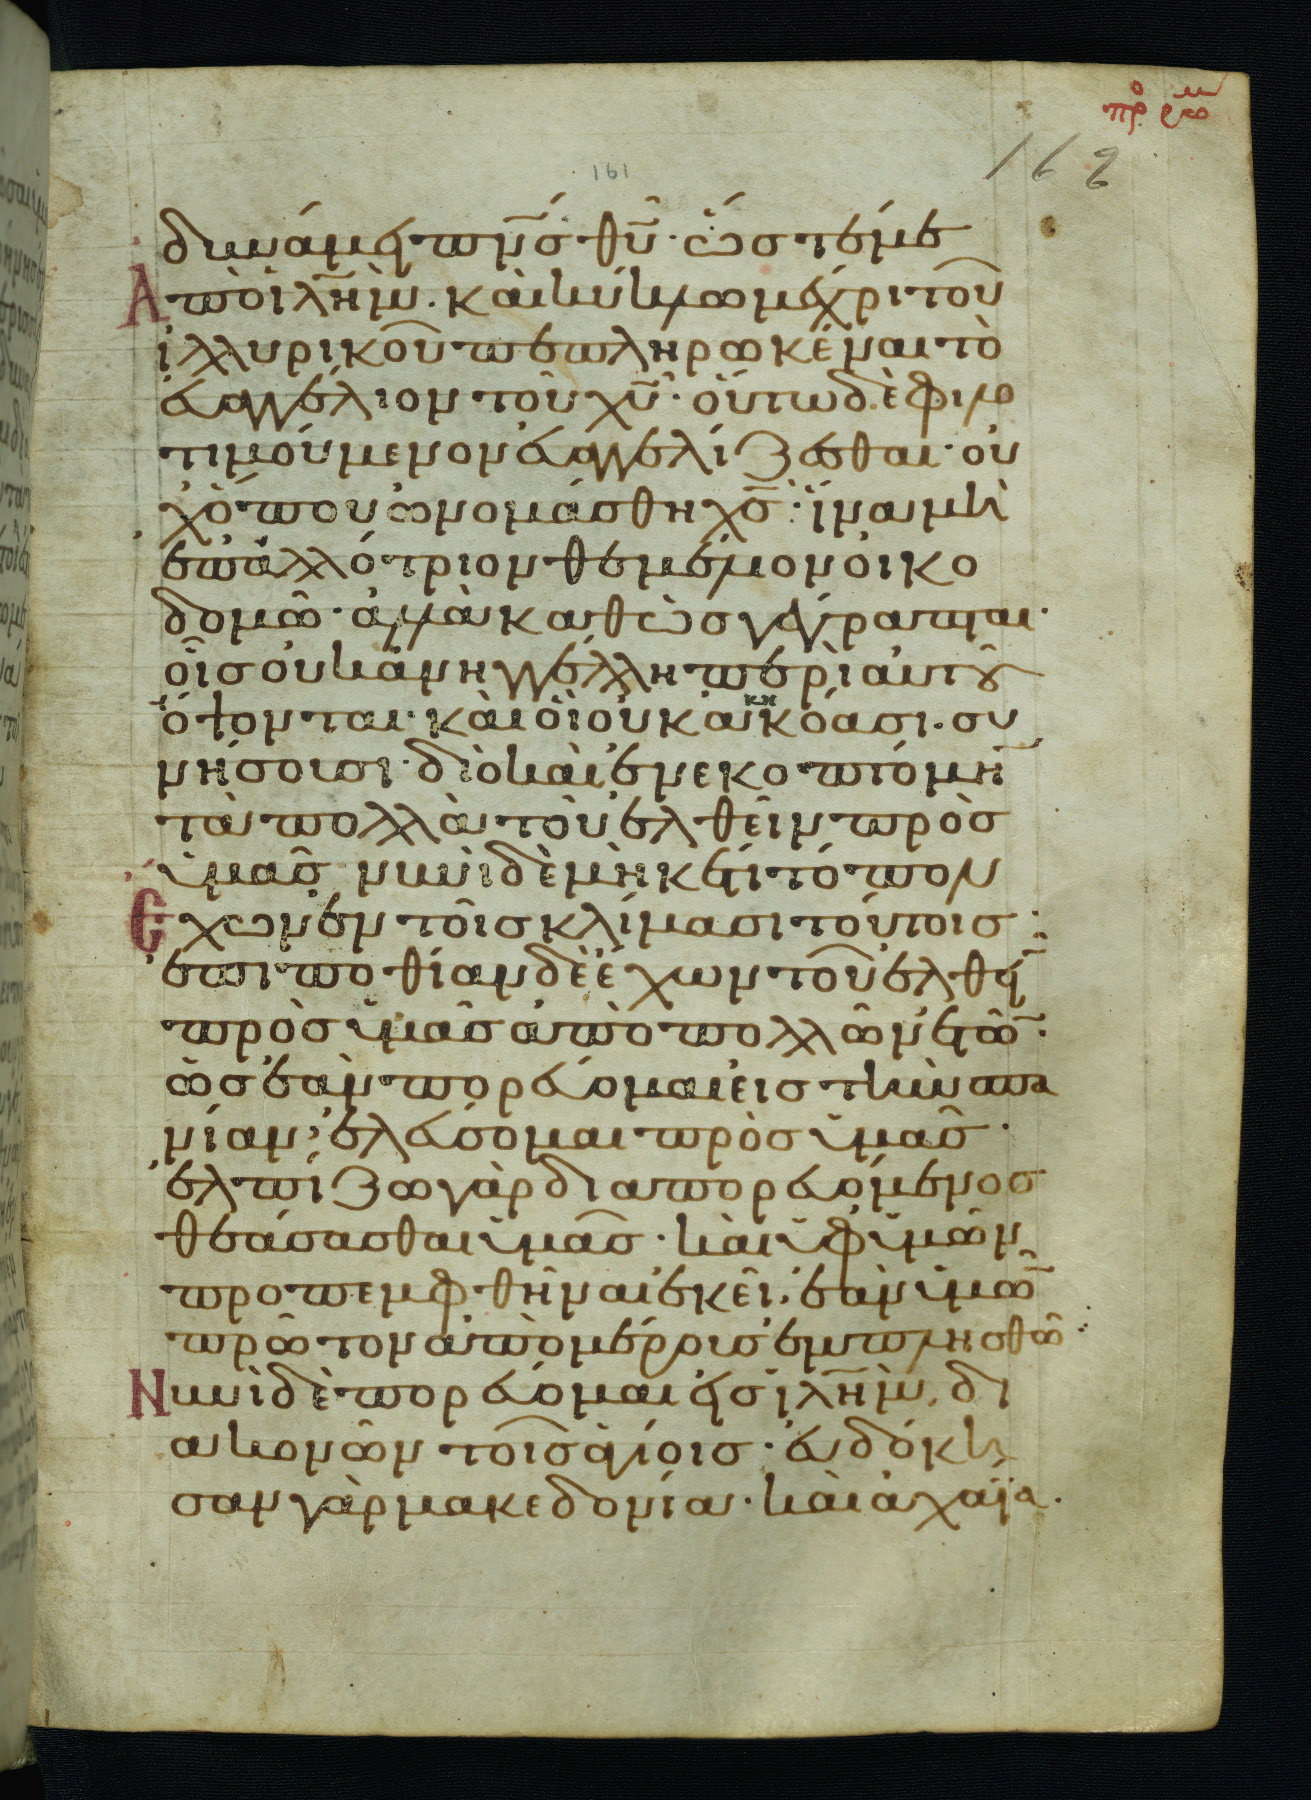 162
161
δυνάμει πν̅σ θυ̅· ὥστέμε
Ἀπὸ ἰλη̅μ. καὶ κύκλω μέχρι τοῦ
ἰλλυρικοῦ πεπληρωκέναι τὸ
εὐαγγέλιον τοῦ χυ̅· οὕτω δὲ φιλο
τιμούμενον εὐαγγελίζεσθαι· οὐ
χ ὅπου ὠνομάσθη χσ̅· ἵνα μὴ
ἐπ ἀλλότριον θεμέλιον οἰκο
δομῶ· ἀλλὰ καθὼσ γέγραπται·
οἷσ οὐκ ἀνηγγέλλη περὶ αὐτοῦ
ὄψονται· καὶ οἳ οὐκ ἀκηκόασι. συ
νήσουσι· διὸ καὶ ἐνεκοπτόμην
τὰ πολλὰ τοῦ ἐλθεῖν πρὸσ
ὑμᾶσ νυνὶ δὲ μὴκέτι τόπον
Ἔχων ἐν τοῖσ κλίμασι τούτοισ·
ἐπιποθίαν δὲ ἔχων τοῦ ἐλθεῖν
πρὸσ ὑμᾶσ ἀπὸ πολλῶν ἐτῶν·
ὡσ ἐὰν πορεύομαι εἰσ τὴν σπα
νίαν, ἐλεύσομαι πρὸσ ὑμᾶσ·
ἐλπίζω γὰρ διαπορευόμενοσ
θεάσασθαι ὑμᾶσ· καὶ ὑφ ὑμῶν
προπεμφθῆναι ἐκεῖ, ἐὰν ὑμῶν
πρῶτον ἀπὸ μέρουσ ἐμπλησθῶ:
Νυνὶ δὲ πορεύομαι εἰσ ἰλη̅μ, δι
ακονῶν τοῖσ ἁγίοισ· εὐδόκη
σαν γὰρ μακεδονία· καὶ ἀχαΐα·